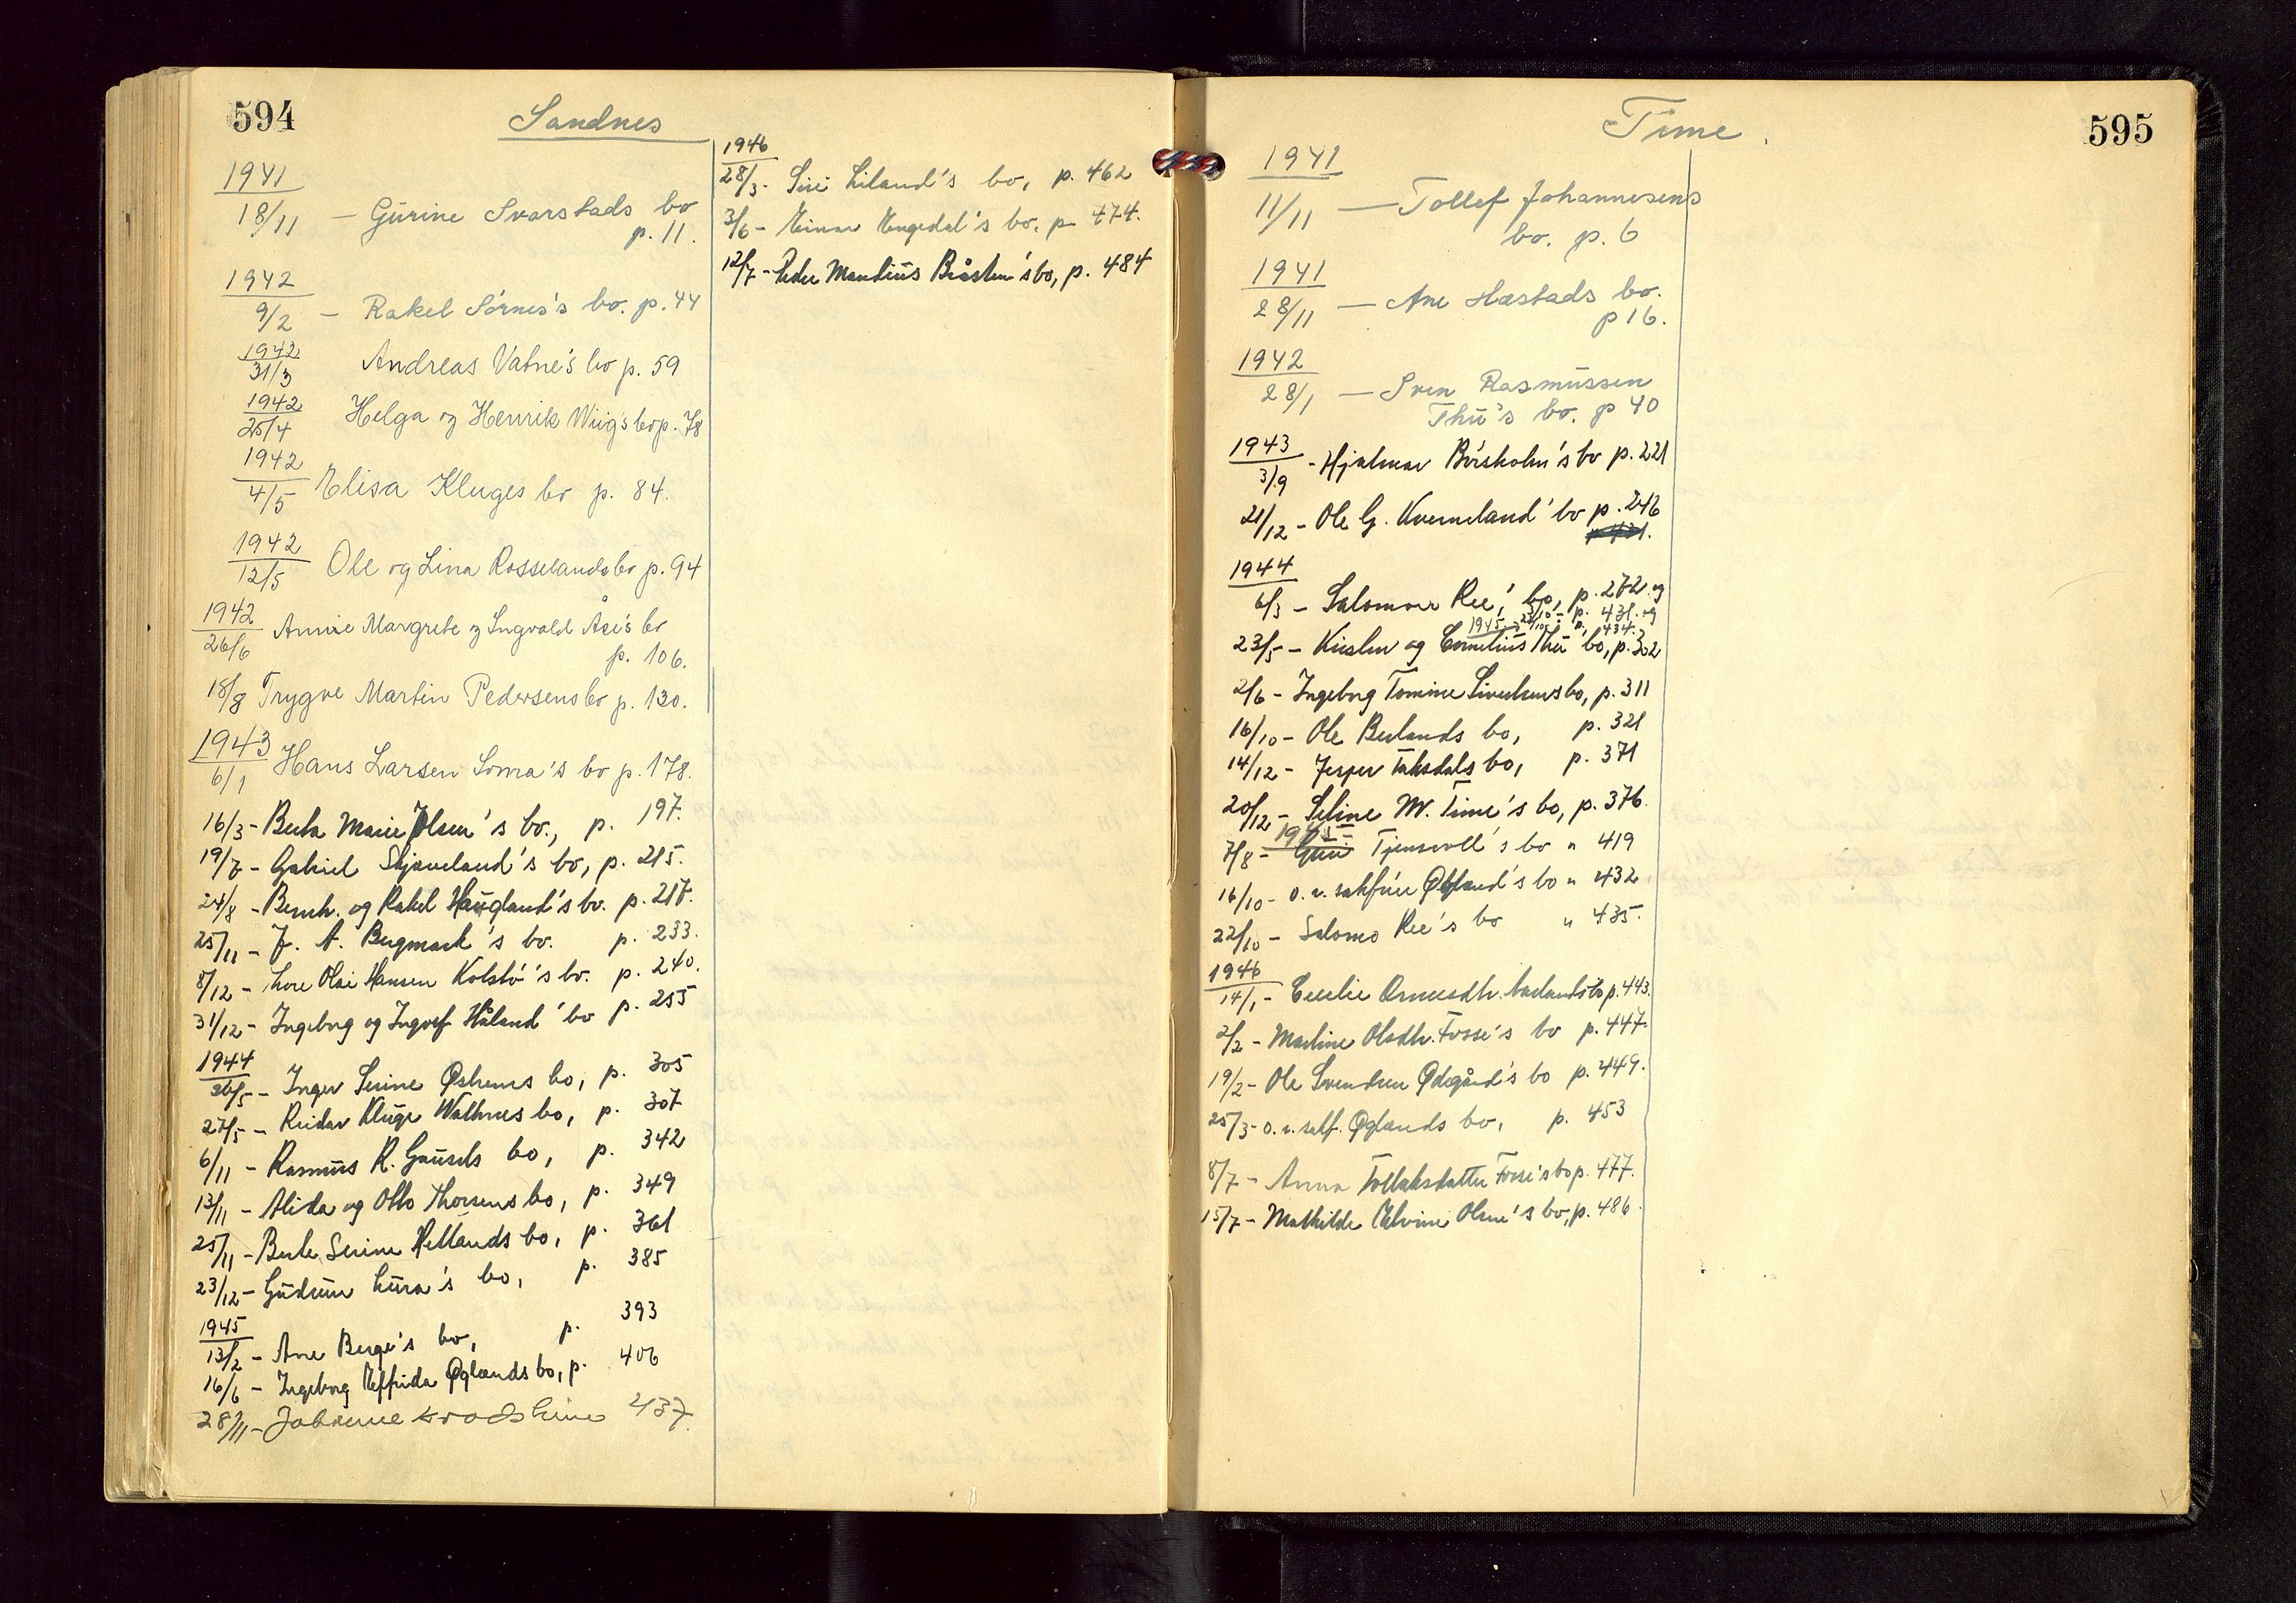 594
Sandnes
1941
18/11 — Gürine Svarstads bo
p. 11.
1942
9/2 — Rakel Sørnes's bo. p. 44
1942
31/3 Andreas Vatne's bo p. 59
1942
25/4 Helga og Henrik Wiig's bo p. 78
1942
4/5 Elisa Kluges bo p. 84.
1942
12/5 Ole og Lina Rosselands bo p. 94
1942
26/6 Annie Margrete og Ingvald Åse's bo
p. 106.
18/8 Trygve Martin Pedersens bo p. 130.
1943
6/1 Hans Larsen Soma's bo p. 178.
16/3 - Berta Marie Olsen's bo., p. 197.
19/7 - Gabriel Skjæveland's bo, p. 215.
24/8 - Bernh. og Rakel Haugland's bo. p. 217.
25/11 - J. A. Bergmark's bo. p. 233.
8/12 - Thore Olai Hansen Kolstø's bo. p. 240.
31/12 - Ingeborg og Ingvef Håland' bo p. 255
1944
26/5 - Inger Serine Østrems bo, p. 305
27/5 - Reidar Kluge Wathnes bo, p. 307
6/11 - Rasmüs R. Gaüsels bo, p. 342
13/11 - Alida og Otto Thorsens bo, p. 349
25/11 - Berte Serine Hetlands bo, p. 361
23/12 - Güdrün Lüra's bo, p. 385
1945
13/2 - Ane Berge's bo, p. 393
16/6 - Ingeborg Elfrida Øglænds bo, p. 406
28/11 - 437.
1946
28/3 - Siri Liland's bo, p. 462
3/6 - Einar Engedal's bo. p 474.
12/7 - Peder Mandius Bråsten's bo, p. 484
595
Time.
1941
11/11 — Tollef Johannesens
bo. p. 6
1941
28/11 — Ane Hæstads bo.
p 16.
1942
28/1 — Sven Rasmüssen
Thü's bo. p 40
1943
3/9 - Hjalmar Børsholm's bo p. 221
21/12 - Ole G. Kverneland' bo p. 246
1944
6/3 - Salomon Ree', bo, p. 272 og
23/10 - p. 431. og
1945 - p. 434.
23/5 - Kirsten og Cornelius Thü bo, p. 302
2/6 - Ingeborg Tomine Sivertsens bo, p. 311
16/10 - Ole Berlands bo, p. 321
14/12 - Jesper Taksdals bo, p. 371
20/12 - Seline M. Time's bo, p. 376.
1945
7/8 - Guri Tjensvoll's bo " 419
16/10 - o. r. sakfører Øgland's bo " 432
22/10 - Salomo Ree's bo " 435.
1946
14/1 - Cecilie Ormsdtr. Aarlands bo p. 443.
2/2 - Martine Olsdtr. Fosse's bo p. 447.
19/2 - Ole Svendsen Ødegård's bo p. 449.
25/3 - o. r. sakf. Øglænds bo, p. 453
8/7 - Anna Tollaksdatter Fosse's bo p. 477.
15/7 - Mathilde Elvine Olsen's bo, p. 486.